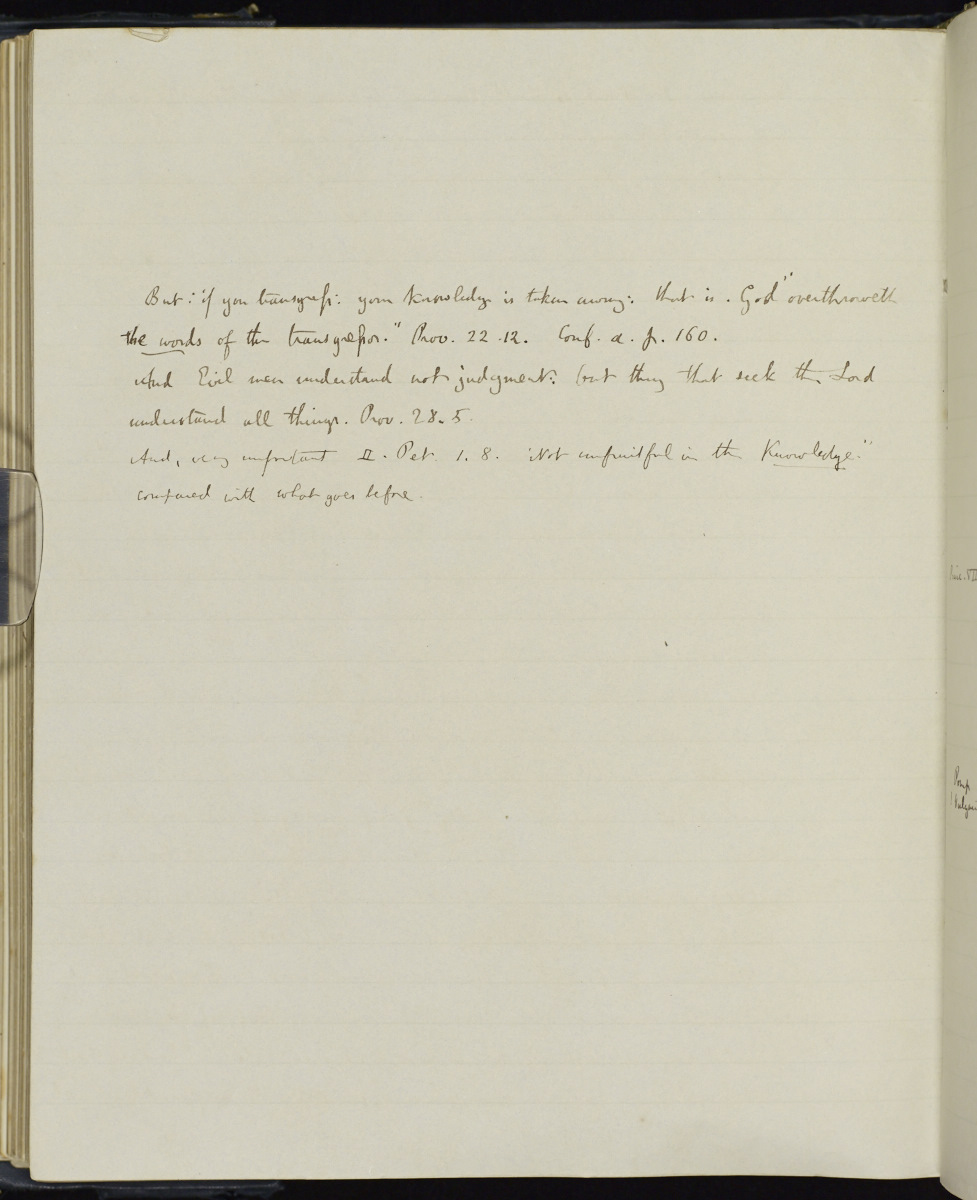 But: if you transgress: your knowledge is taken away: that is. God "overthroweth
the words of the transgressor." Prov. 22.12. Conf. a. p. 160.
And Evil men understand not judgment: but they that seek the Lord
understand all things. Prov. 28.5.
And, very important II. Pet. 1. 8. Not unfruitful in the Knowledge."
compared with what goes before.